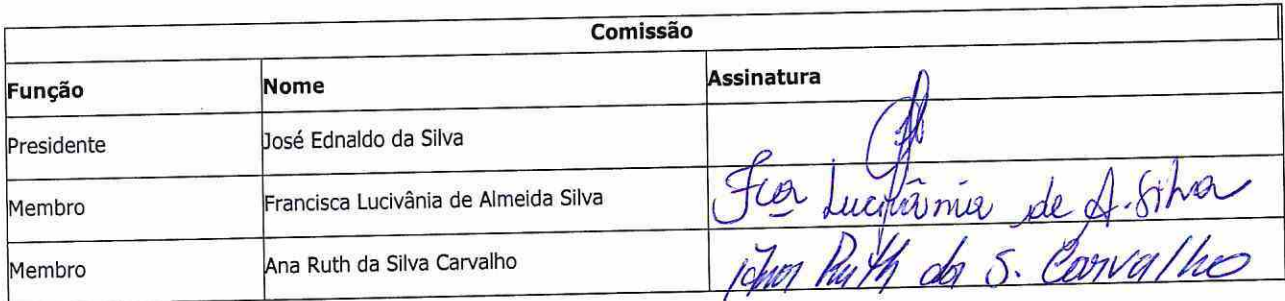 Comissão
Função Nome Assinatura
Presidente José Ednaldo da Silva
Membro Francisca Lucivânia de Almeida Silva Fca Lucivânia de A. Silva
Membro Ana Ruth da Silva Carvalho Ana Ruth da S. Carvalho